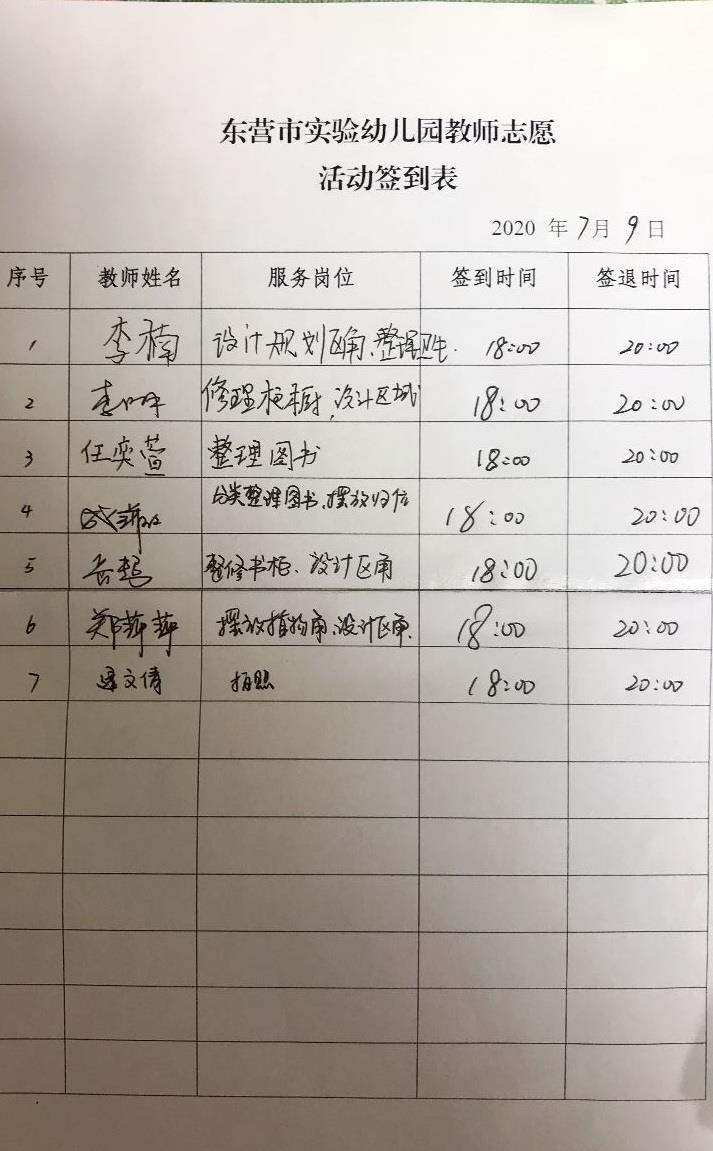 东营市实验幼儿园教师志愿
活动签到表
2020 年 7月 9 日
序号 教师姓名 服务岗位 签到时间 签退时间
1 李楠 设计规划区角、整理卫生. 18:00 20:00
2 修理桓橱,设计区域 18:00 20:00
3 任奕萱 整理图书 18:00 20:00
4 分类整理图书、摆放归位 18:00 20:00
5 整修书柜、设计区角 18:00 20:00
6 郑萍萍 摆放植物角、设计区角. 18:00 20:00
7 梁文倩 拍照 18:00 20:00